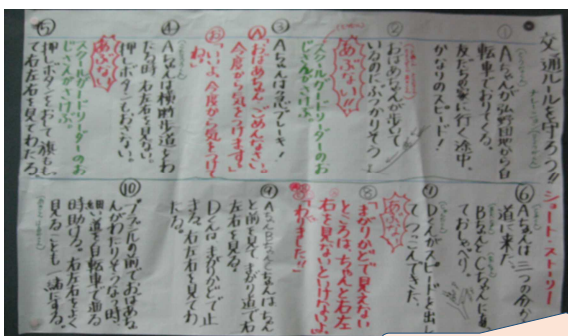 交通ルールを守ろう!!
ショート・ストーリー
①
Aちゃんが弘野団地から自
転車でおりてくる。
友だちの家に行く途中。
かなりのスピード!
②
おばあちゃんが歩いて
いるのにぶつかりそう
あぶない!!
スクールガードリーダーのお
じさんがさけぶ。
③
Aちゃんは急ブレーキ!
「おばあちゃん、ごめんなさい。
今度から気をつけます。」
「いいよ、今度から気をつけて
ね。」
④
Aちゃんは横断歩道をわ
たる時、右左を見ない。
押しボタンをおさない。
あぶない
スクールガードリーダーのお
じさんがさけぶ。
⑤
押しボタンをおして、旗もも
って右左右を見てわたる。
⑥
Aちゃんは三つの分か
道に来た。
BちゃんとCちゃんに会
ておしゃべり。
⑦
Dくんがスピードを出し
てつっこんできた。
あぶない
⑧
「まがりかどで見えない
ところは、ちゃんと右左
右を見ないといけないよ。」
「わかりました!!」
⑨
AちゃんBちゃんCちゃんは、ちゃん
と前を見て、まがり道で右
左右を見る。
Dくんは、まがりかどで止
まる。右左右を見てわ
たる。
⑩
プラザの前でおばあちゃ
んがわたりそうな時、
細い道を自転車で通る
時助ける。右左右をよく
見ることも一緒にする。